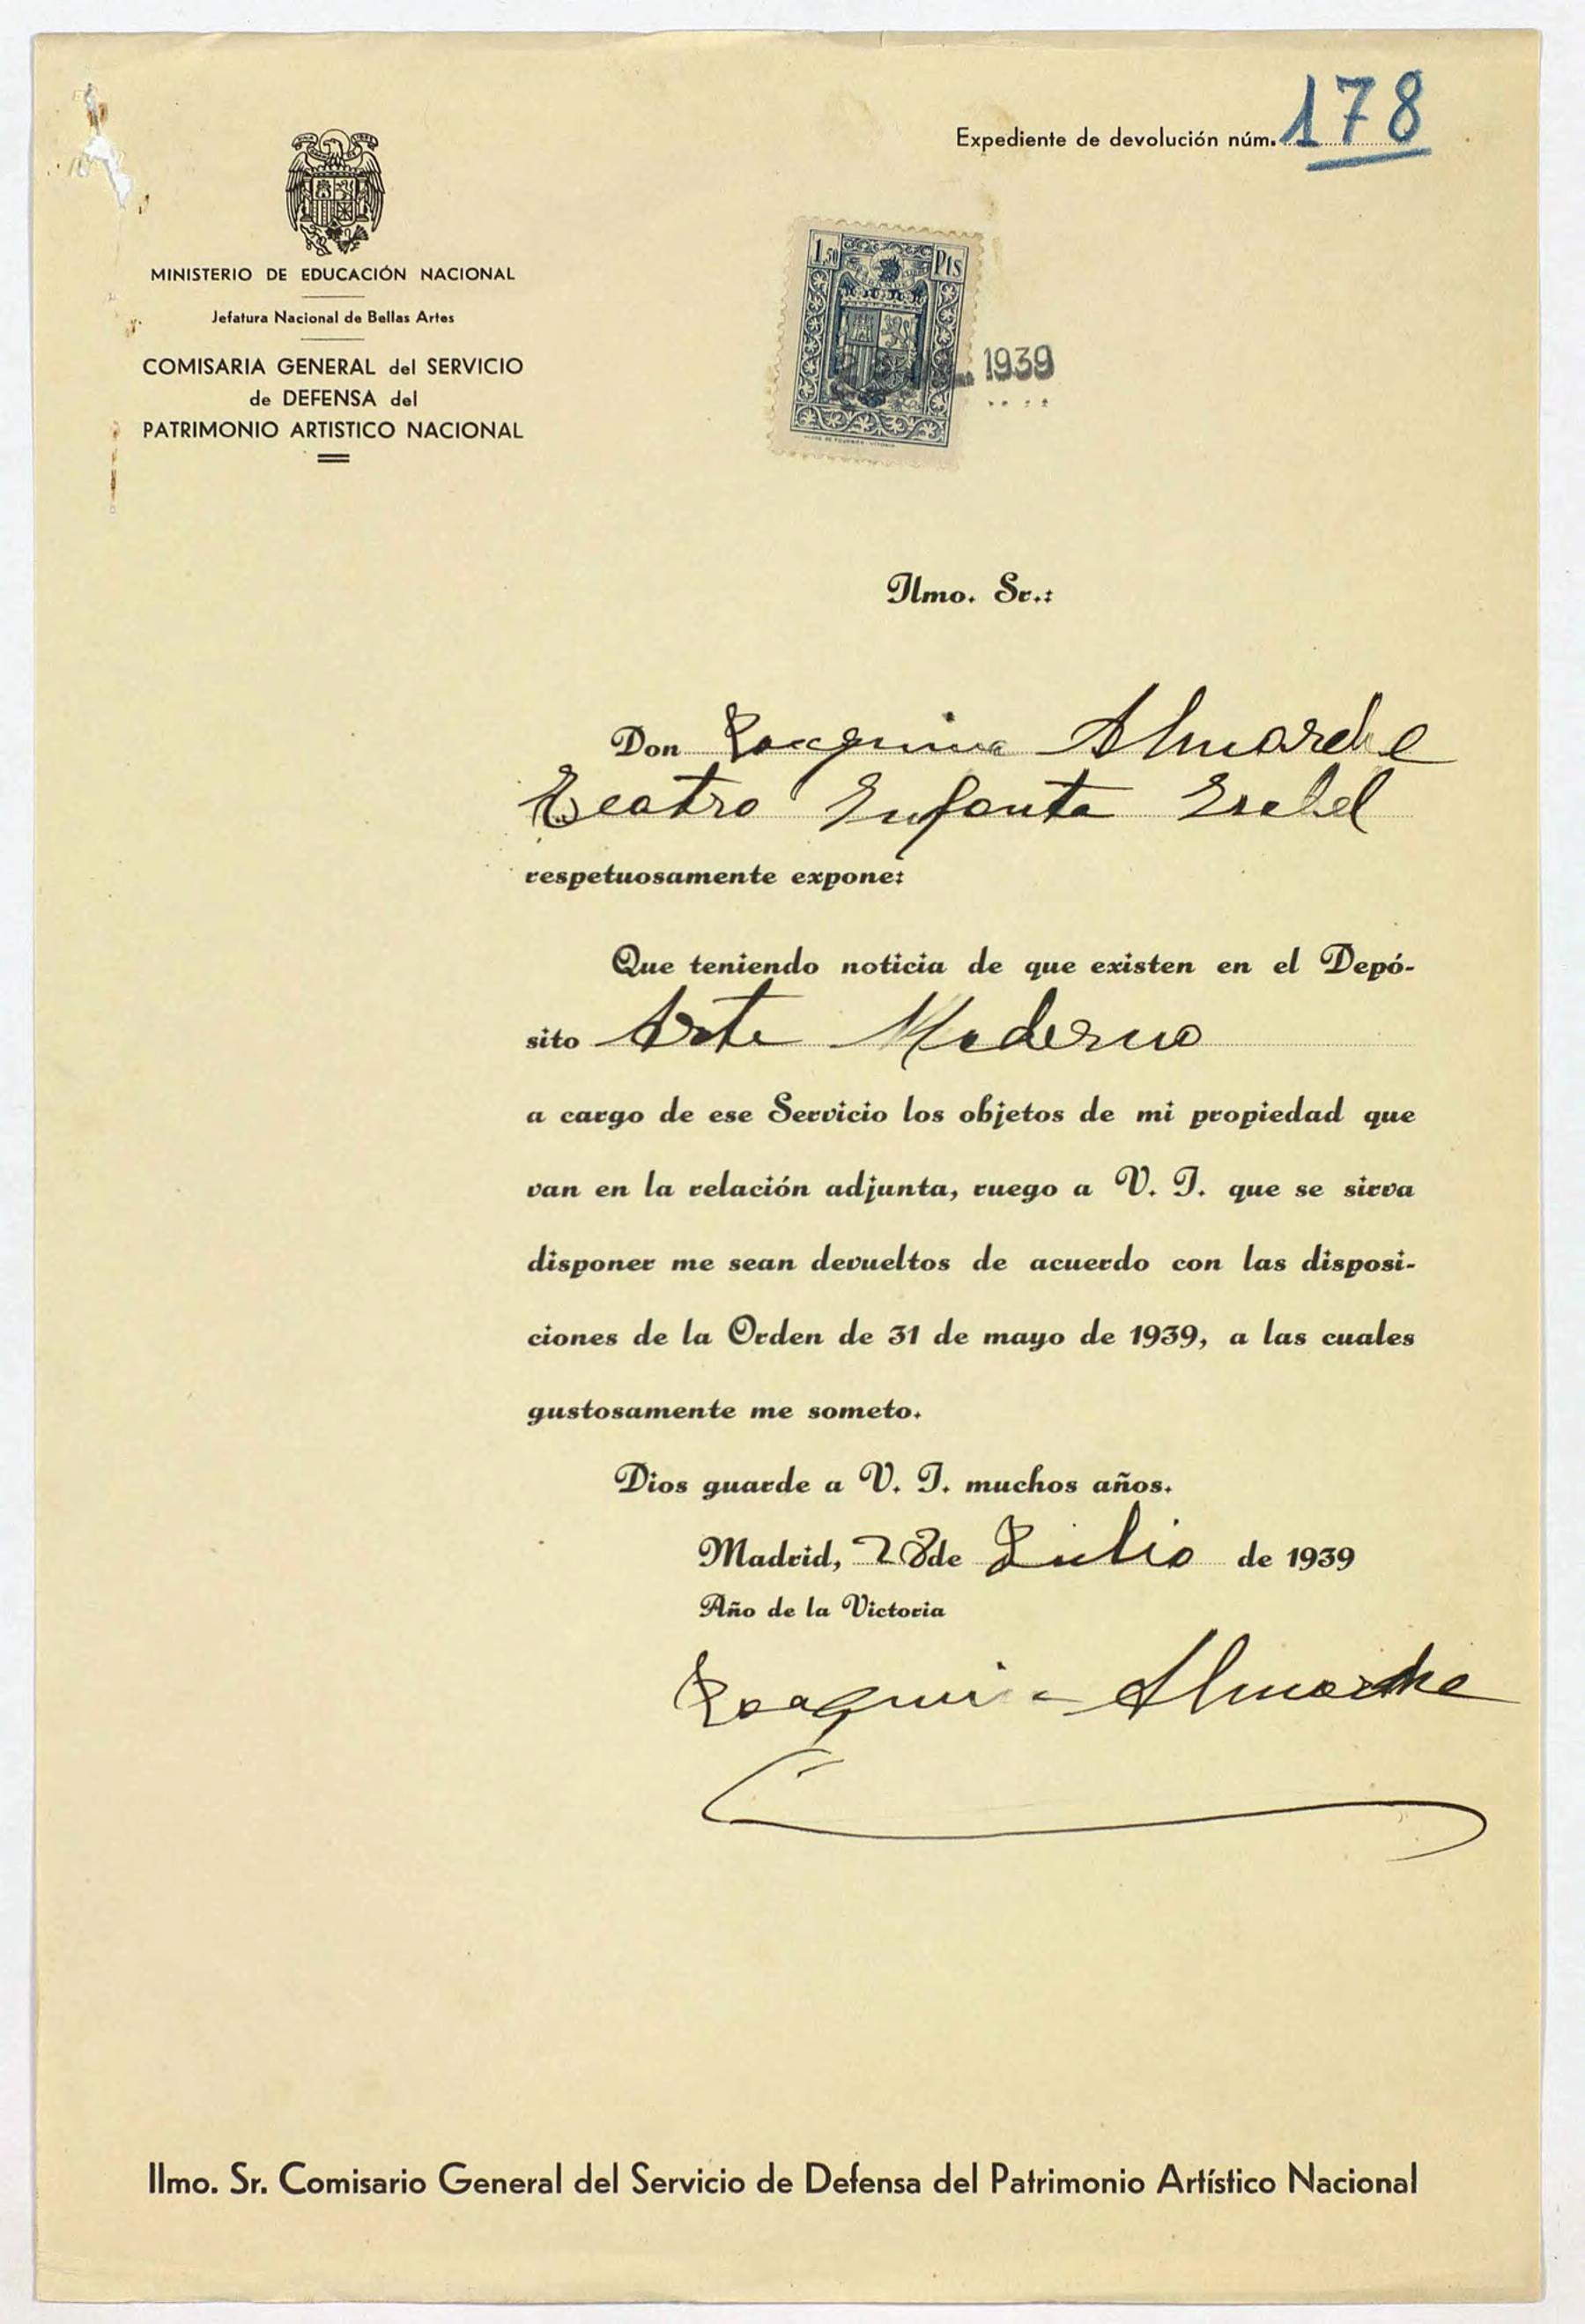 Expediente de devolución núm. 178
MINISTERIO DE EDUCACIÓN NACIONAL
Jefatura Nacional de Bellas Artes
COMISARIA GENERAL del SERVICIO
de DEFENSA del
PATRIMONIO ARTISTICO NACIONAL
1,50 Pts
1939
Ilmo. Sr.:
Don Joaquina Almarche
Teatro Infanta Isabel
respetuosamente expone:
Que teniendo noticia de que existen en el Depó-
sito Arte Moderno
a cargo de ese Servicio los objetos de mi propiedad que
van en la relación adjunta, ruego a V. I. que se sirva
disponer me sean devueltos de acuerdo con las disposi-
ciones de la Orden de 31 de mayo de 1939, a las cuales
gustosamente me someto.
Dios guarde a V. I. muchos años.
Madrid, 28 de Julio de 1939
Año de la Victoria
Joaquina Almarche
Ilmo. Sr. Comisario General del Servicio de Defensa del Patrimonio Artístico Nacional